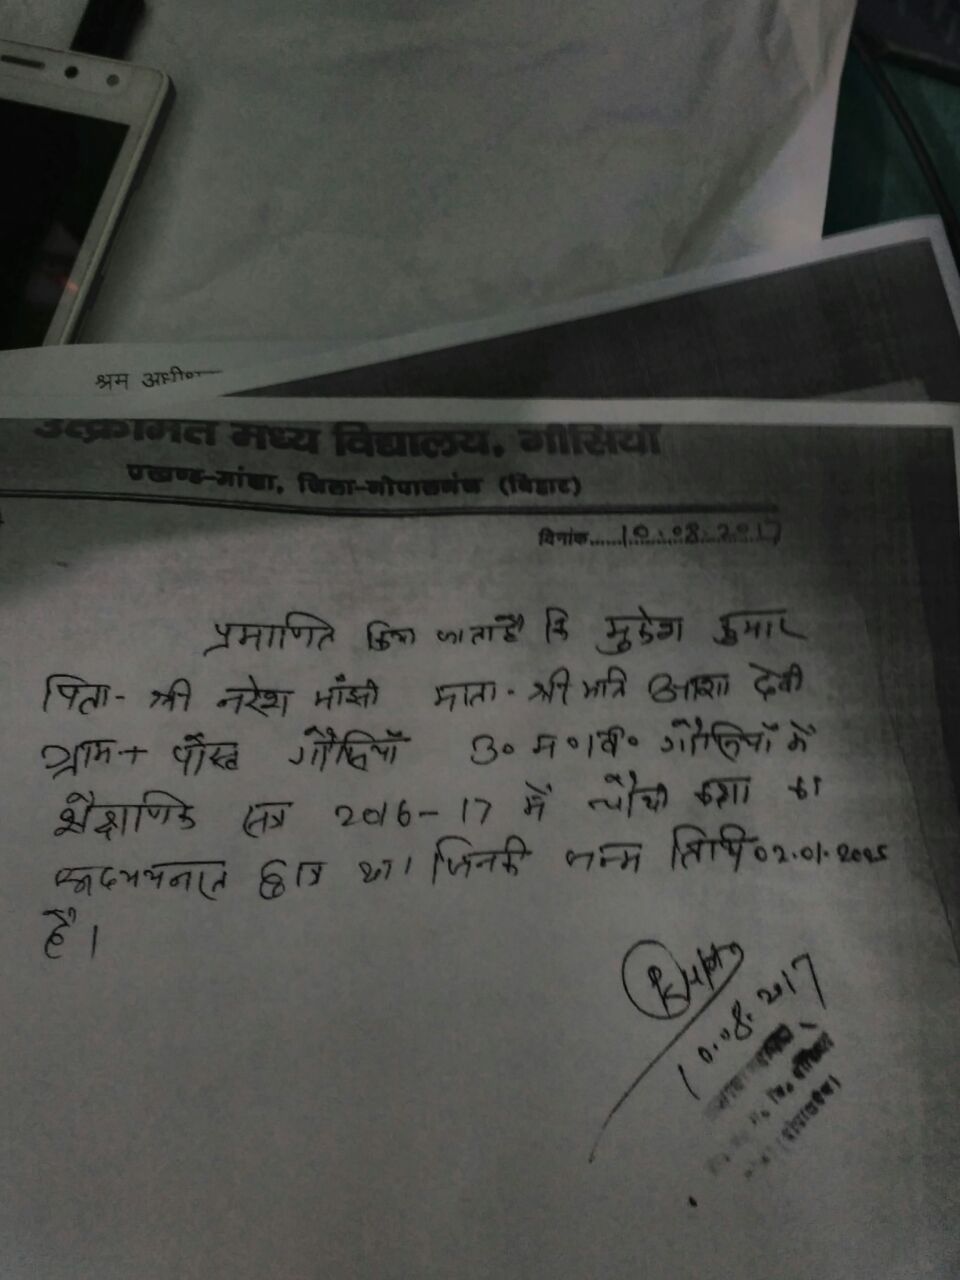 श्रम अधी०
उत्क्रमित मध्य विद्यालय, गौसियाँ
प्रखण्ड-मांझा, जिला-गोपालगंज (बिहार)
दिनांक......10.08.2017
प्रमाणित किया जाता है कि मुकेश कुमार
पिता - श्री नरेश माँझी माता - श्री मति आशा देवी
ग्राम + पोस्ट गौसियाँ उ० म० वि० गौसियाँ में
शैक्षाणिक सत्र 2016-17 में चौथी कक्षा का
अध्ययनरत छात्र था। जिनकी जन्म तिथि 02.01.2005
है।
10.08.2017